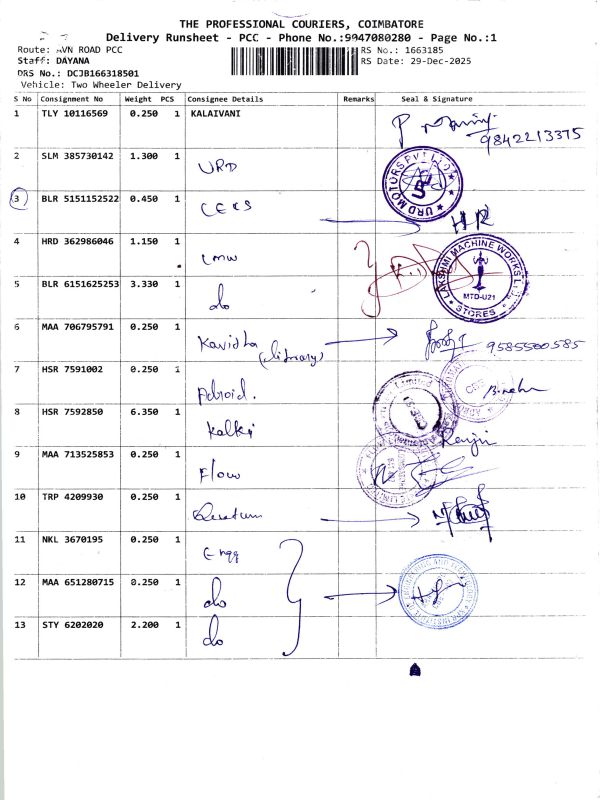 THE PROFESSIONAL COURIERS, COIMBATORE
Delivery Runsheet - PCC - Phone No.:9947080280 - Page No.:1
Route: AVN ROAD PCC
RS No.: 1663185
Staff: DAYANA
RS Date: 29-Dec-2025
DRS No.: DCJB166318501
Vehicle: Two Wheeler Delivery
S No Consignment No Weight PCS Consignee Details Remarks Seal & Signature
1 TLY 10116569 0.250 1 KALAIVANI
9842213375
2 SLM 385730142 1.300 1 URD
URD MOTORS PVT LTD
3 BLR 5151152522 0.450 1 CEKS
HR
4 HRD 362986046 1.150 1 LMW
LAKSHMI MACHINE WORKS LTD
MTD-U21
STORES
5 BLR 6151625253 3.330 1 do
6 MAA 706795791 0.250 1 Kavidha (library)
9585500585
7 HSR 7591002 0.250 1 Adroid.
8 HSR 7592850 6.350 1 Kalki
Limited
9 MAA 713525853 0.250 1 Flow
10 TRP 4209930 0.250 1
11 NKL 3670195 0.250 1 Engg
12 MAA 651280715 0.250 1 do
13 STY 6202020 2.200 1 do